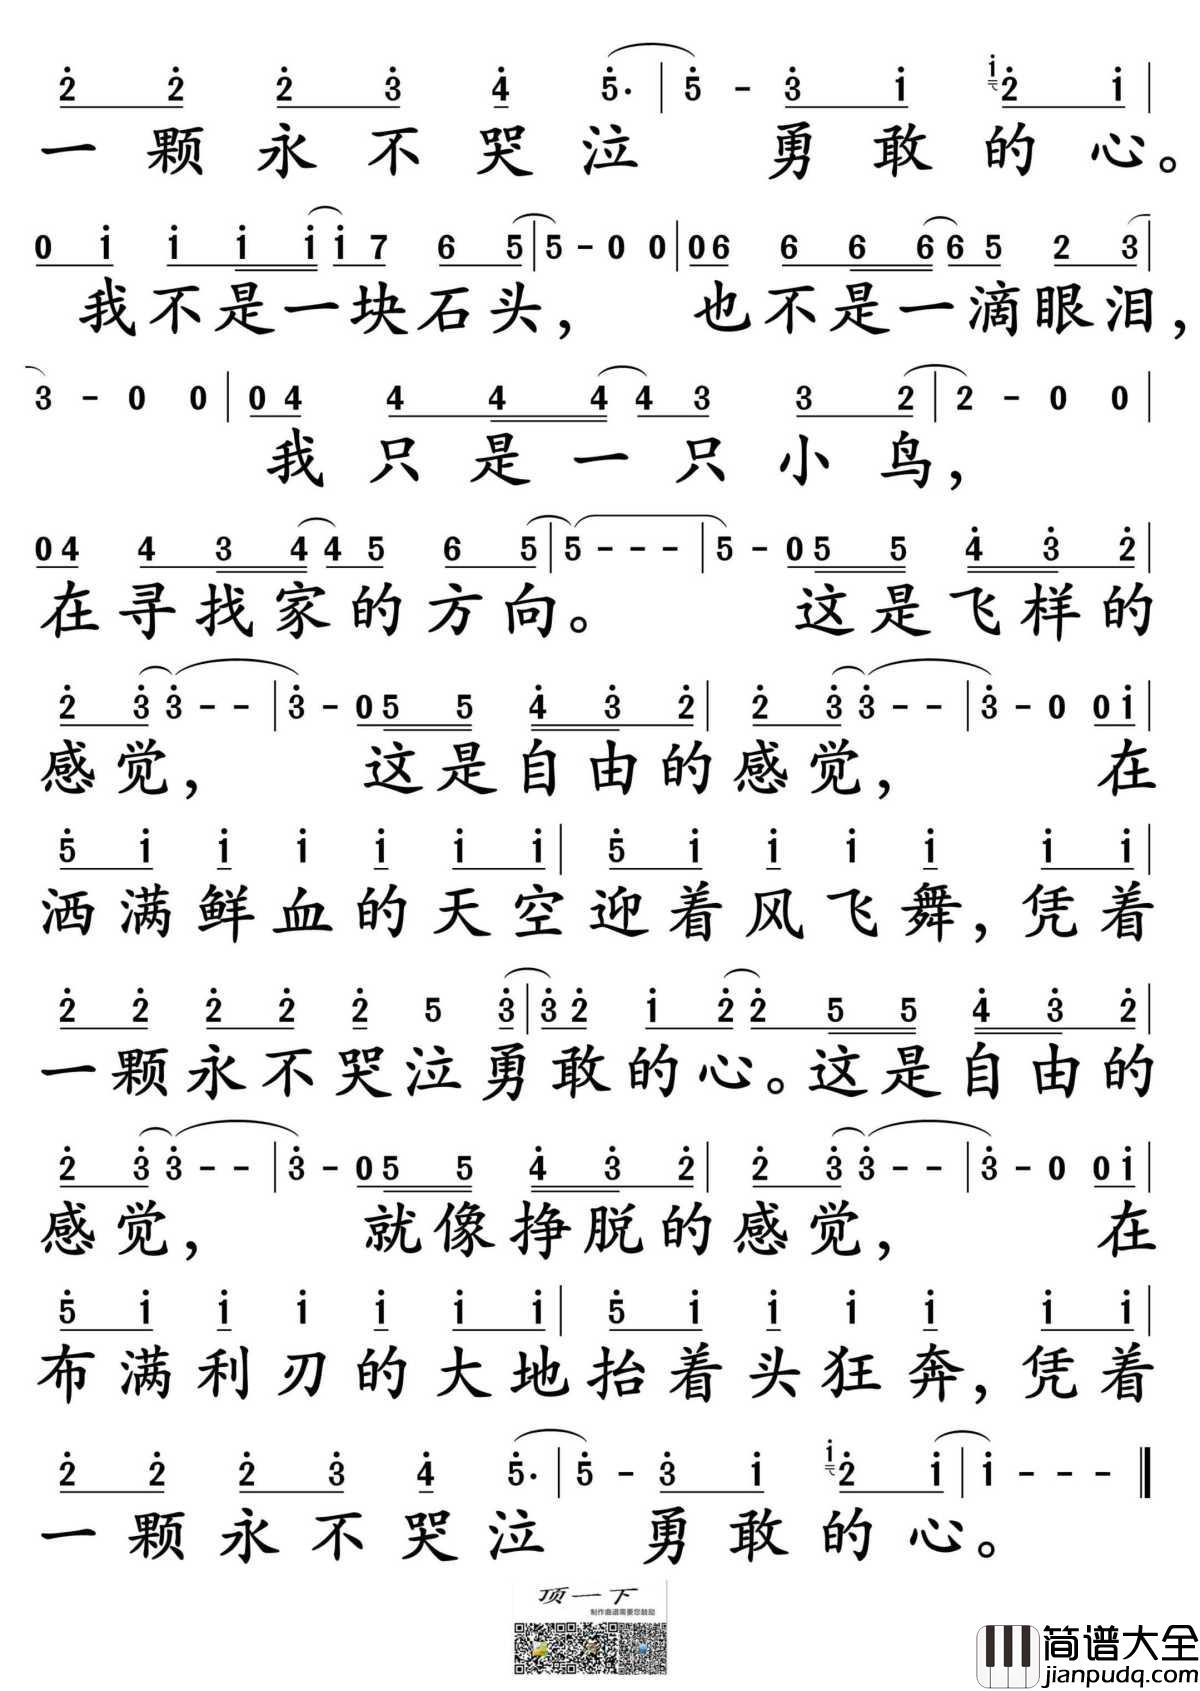 2 2 2 3 4 5. | 5 - 3 1 1 2 1 |
一颗永不哭泣 勇敢的心。
0 1 1 1 1 1 7 6 5 | 5 - 0 0 | 0 6 6 6 6 6 5 2 3 |
我不是一块石头， 也不是一滴眼泪，
3 - 0 0 | 0 4 4 4 4 4 3 3 2 | 2 - 0 0 |
我只是一只小鸟，
0 4 4 3 4 4 5 6 5 | 5 - - - | 5 - 0 5 5 4 3 2 |
在寻找家的方向。 这是飞样的
2 3 3 - - | 3 - 0 5 5 4 3 2 | 2 3 3 - - | 3 - 0 0 1 |
感觉， 这是自由的感觉， 在
5 1 1 1 1 1 1 | 5 1 1 1 1 1 1 |
洒满鲜血的天空迎着风飞舞，凭着
2 2 2 2 2 5 3 | 3 2 1 2 2 5 5 4 3 2 |
一颗永不哭泣勇敢的心。这是自由的
2 3 3 - - | 3 - 0 5 5 4 3 2 | 2 3 3 - - | 3 - 0 0 1 |
感觉， 就像挣脱的感觉， 在
5 1 1 1 1 1 1 | 5 1 1 1 1 1 1 |
布满利刃的大地抬着头狂奔，凭着
2 2 2 3 4 5. | 5 - 3 1 1 2 1 | 1 - - - ‖
一颗永不哭泣 勇敢的心。
顶一下
制作曲谱需要您鼓励
简谱大全
jianpudq.com